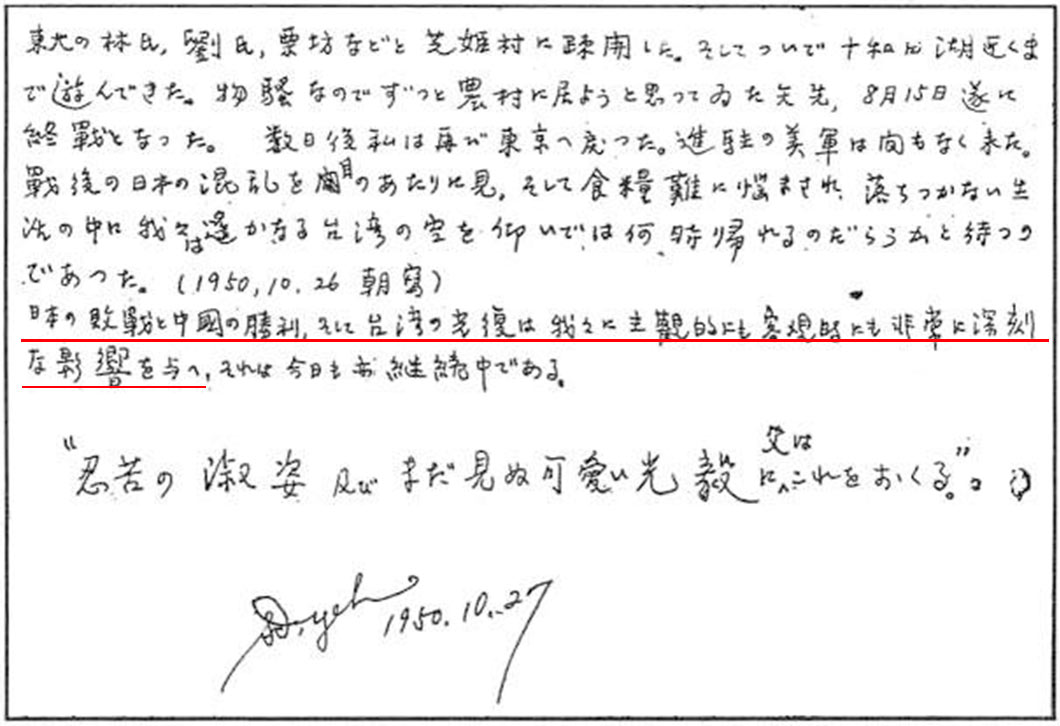 東大の林氏,劉氏,栗坊などと芝姫村に疎開した。そしてついで十和田湖近くま
で遊んできた。物騒なのでずつと農村に居ようと思つてゐた矢先,8月15日遂に
終戰となつた。 数日後私は再び東京へ戻つた。進駐の美軍は間もなく来た。
戰後の日本の混乱を目のあたりに見,そして食糧難に悩まされ,落ちつかない生
活の中に我々は遙かなる台湾の空を仰いでは何時帰れるのだらうかと待つの
であつた。(1950,10.26 朝寫)
日本の敗戰と中國の勝利,そして台湾の光復は我々に主觀的にも客观時にも非常に深刻
な影響を与へ,それは今日も尚継続中である。
"忍苦の淑姿及びまだ見ぬ可愛い光毅に父はこれをおくる。"
D. yeh 1950.10.27